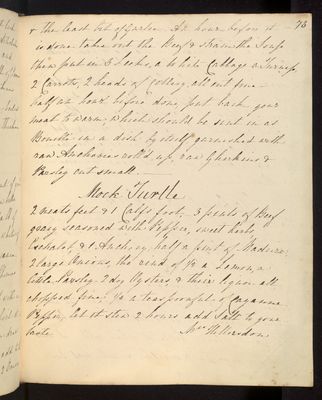 73
& the least bit of Garlic. An hour before it
is done take out the Beef & strain the Soup
then put in 6 Leeks, a White Cabbage 2 Turnips,
2 Carrots, 2 heads of Cellery, all cut fine —
half an hour before done, put back your
meat to warm, which should be sent in as
Bouille in a dish by itself garnished with
raw Anchovies roll'd up, raw Gherkins &
Parsley cut small. —
Mock Turtle
2 neats feet & 1 Calfs foot, 3 pints of Beef
gravy seasoned with Pepper, sweet herbs
Eschalot & 1 Anchovy, half a pint of Madeira
2 large Onions, the rind of ½ a Lemon, a
little Parsley 2 doz Oysters & their liquor all
chopped fine, ½ a teaspoonful of Cayanne
Pepper, let it stew 2 hours add Salt to your
taste. Mrs